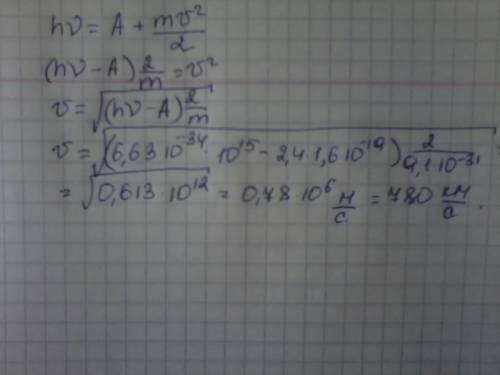 hν = A + mv²/2
(hν - A) 2/m = v²
v = √(hν - A) 2/m
v = √(6,63 10⁻³⁴ 10¹⁵ - 2,4 1,6 10⁻¹⁹) 2/9,1 10⁻³¹
= √0,613 10¹² = 0,78 10⁶ м/с = 780 км/с.